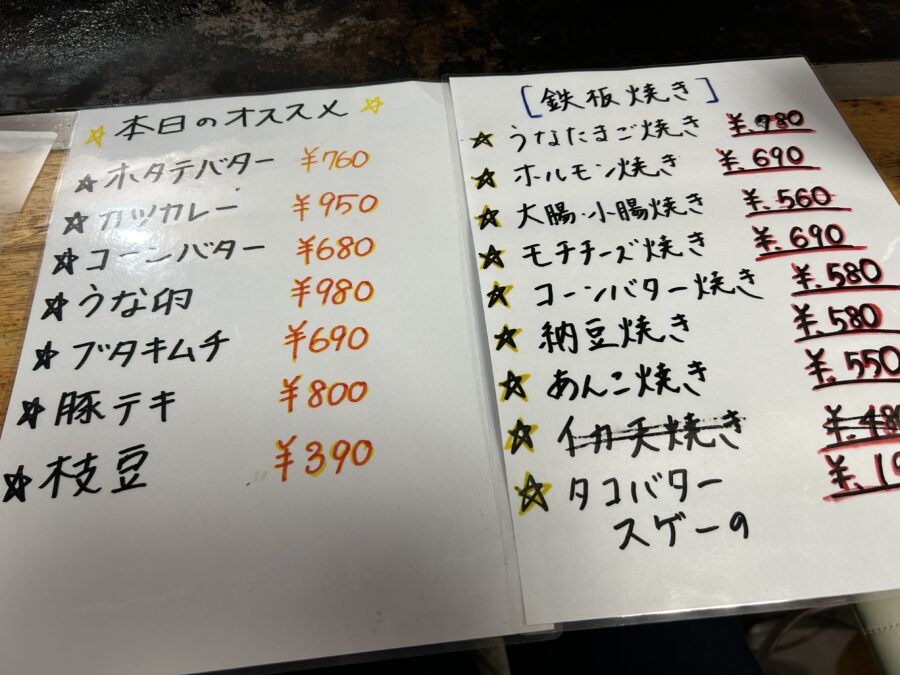 ☆ 本日のオススメ ☆
☆ ホタテバター ¥760
☆ カツカレー ¥950
☆ コーンバター ¥680
☆ うな卵 ¥980
☆ ブタキムチ ¥690
☆ 豚テキ ¥800
☆ 枝豆 ¥390
[鉄板焼き]
☆ うなたまご焼き ¥.980
☆ ホルモン焼き ¥.690
☆ 大腸・小腸焼き ¥.560
☆ モチチーズ焼き ¥.690
☆ コーンバター焼き ¥.580
☆ 納豆焼き ¥.580
☆ あんこ焼き ¥.550
☆ イカ天焼き
☆ タコバター
スゲーの